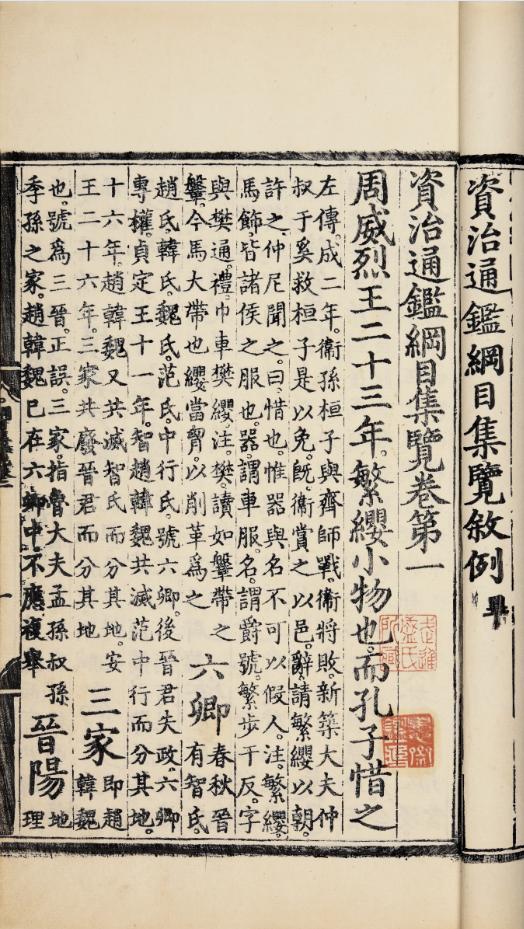 資治通鑑綱目集覽敘例 畢
資治通鑑綱目集覽卷第一
周威烈王二十三年。繁纓小物也。而孔子惜之
左傳。成二年。衞孫桓子與齊師戰。衞將敗。新築大夫仲
叔于奚救桓子。是以免。旣衞賞之以邑。辭。請繁纓以朝。
許之。仲尼聞之。曰惜也。惟器與名不可以假人。注。繁纓。
馬飾。皆諸侯之服也。器謂車服。名謂爵號。繁步干反。字
與樊通。禮巾車樊纓。注。樊讀如鞶帶之
鞶。今馬大帶也。纓當胷。以削革爲之
六卿
春秋晉
有智氏。
趙氏。韓氏。魏氏。范氏。中行氏。號六卿。後晉君失政。六卿
專權。貞定王十一年。智趙韓魏共滅范中行而分其地。
十六年。趙韓魏又共滅智氏而分其地。安
王二十六年。三家共廢晉君而分其地
三家
即趙
韓魏
也。號爲三晉。正誤。三家。指魯大夫孟孫叔孫
季孫之家。趙韓魏已在六卿中。不應複舉
晉陽
地
理